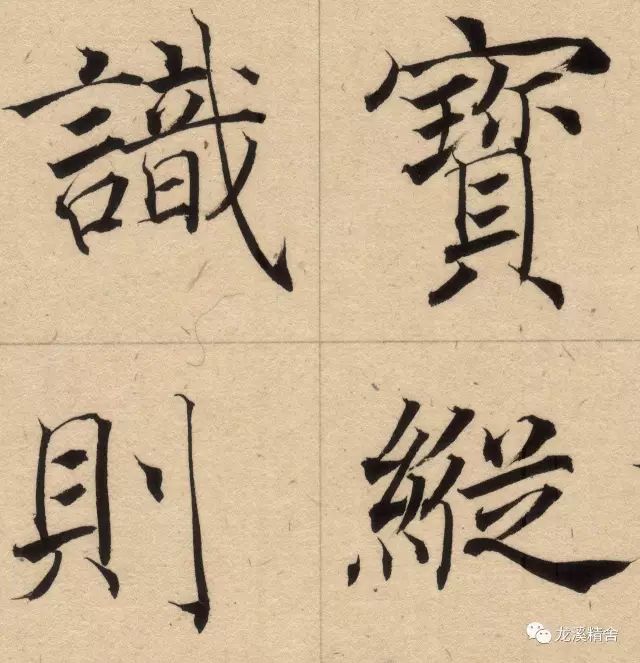 寶縱
識則
龙溪精舍